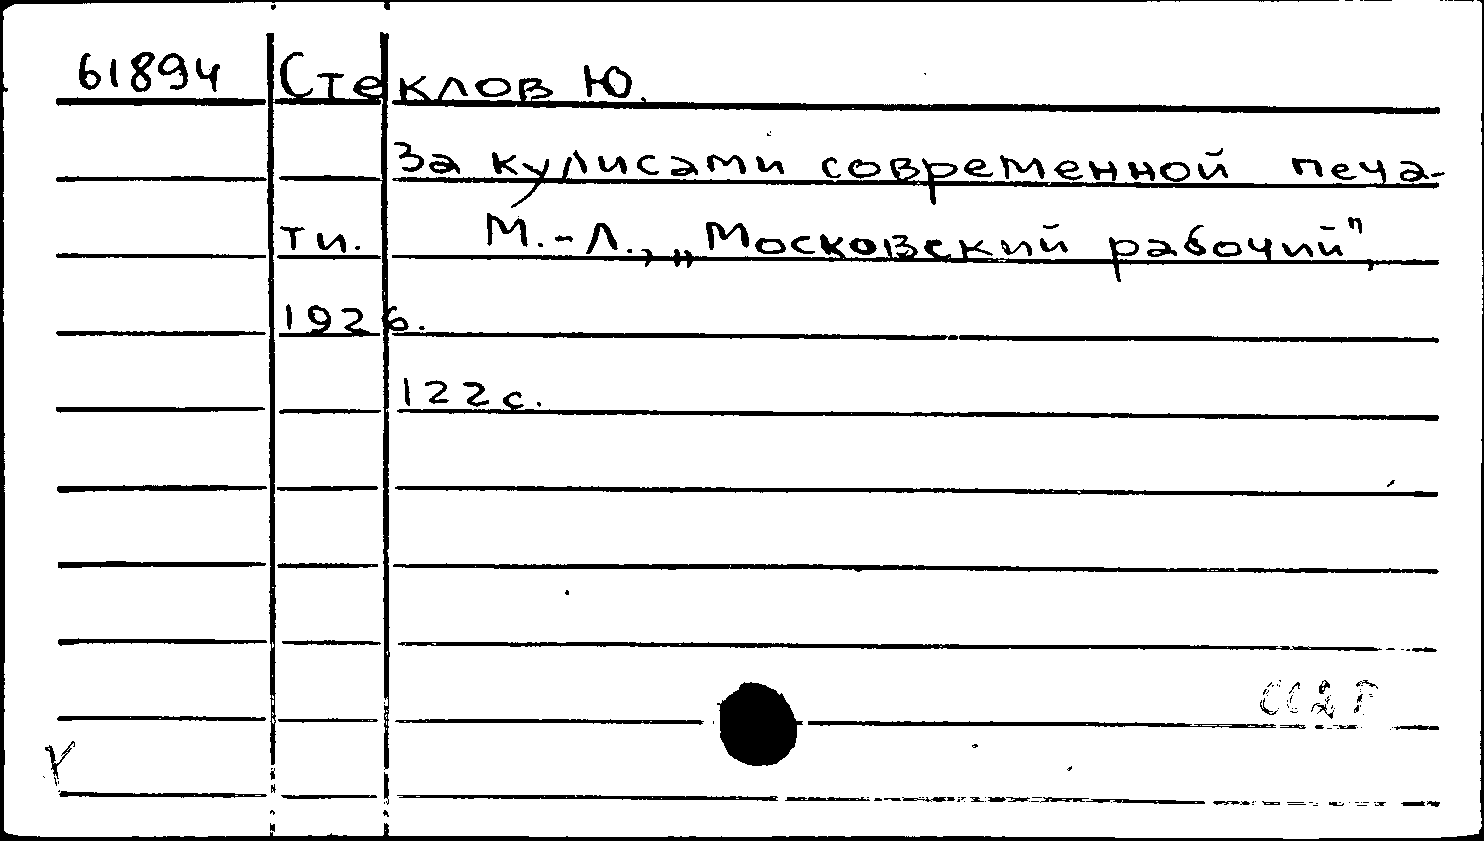 61894 Стеклов Ю.
За кулисами современной печа-
ти. М.-Л., „Московский рабочий",
1926.
122с.